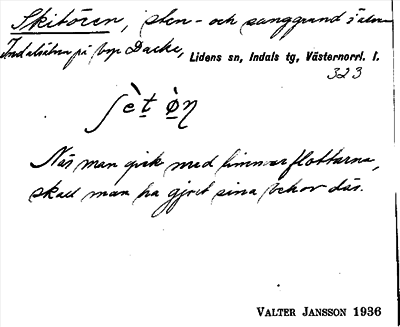 Skitören, sten- och sanggrund i älven
Indalsälven på byn Dacke, Lidens sn, Indals tg, Västernorrl. l.
323
ʃè̀t ø̀n
När man gick med timmerflottarna,
skall man ha gjort sina behov där.
VALTER JANSSON 1936